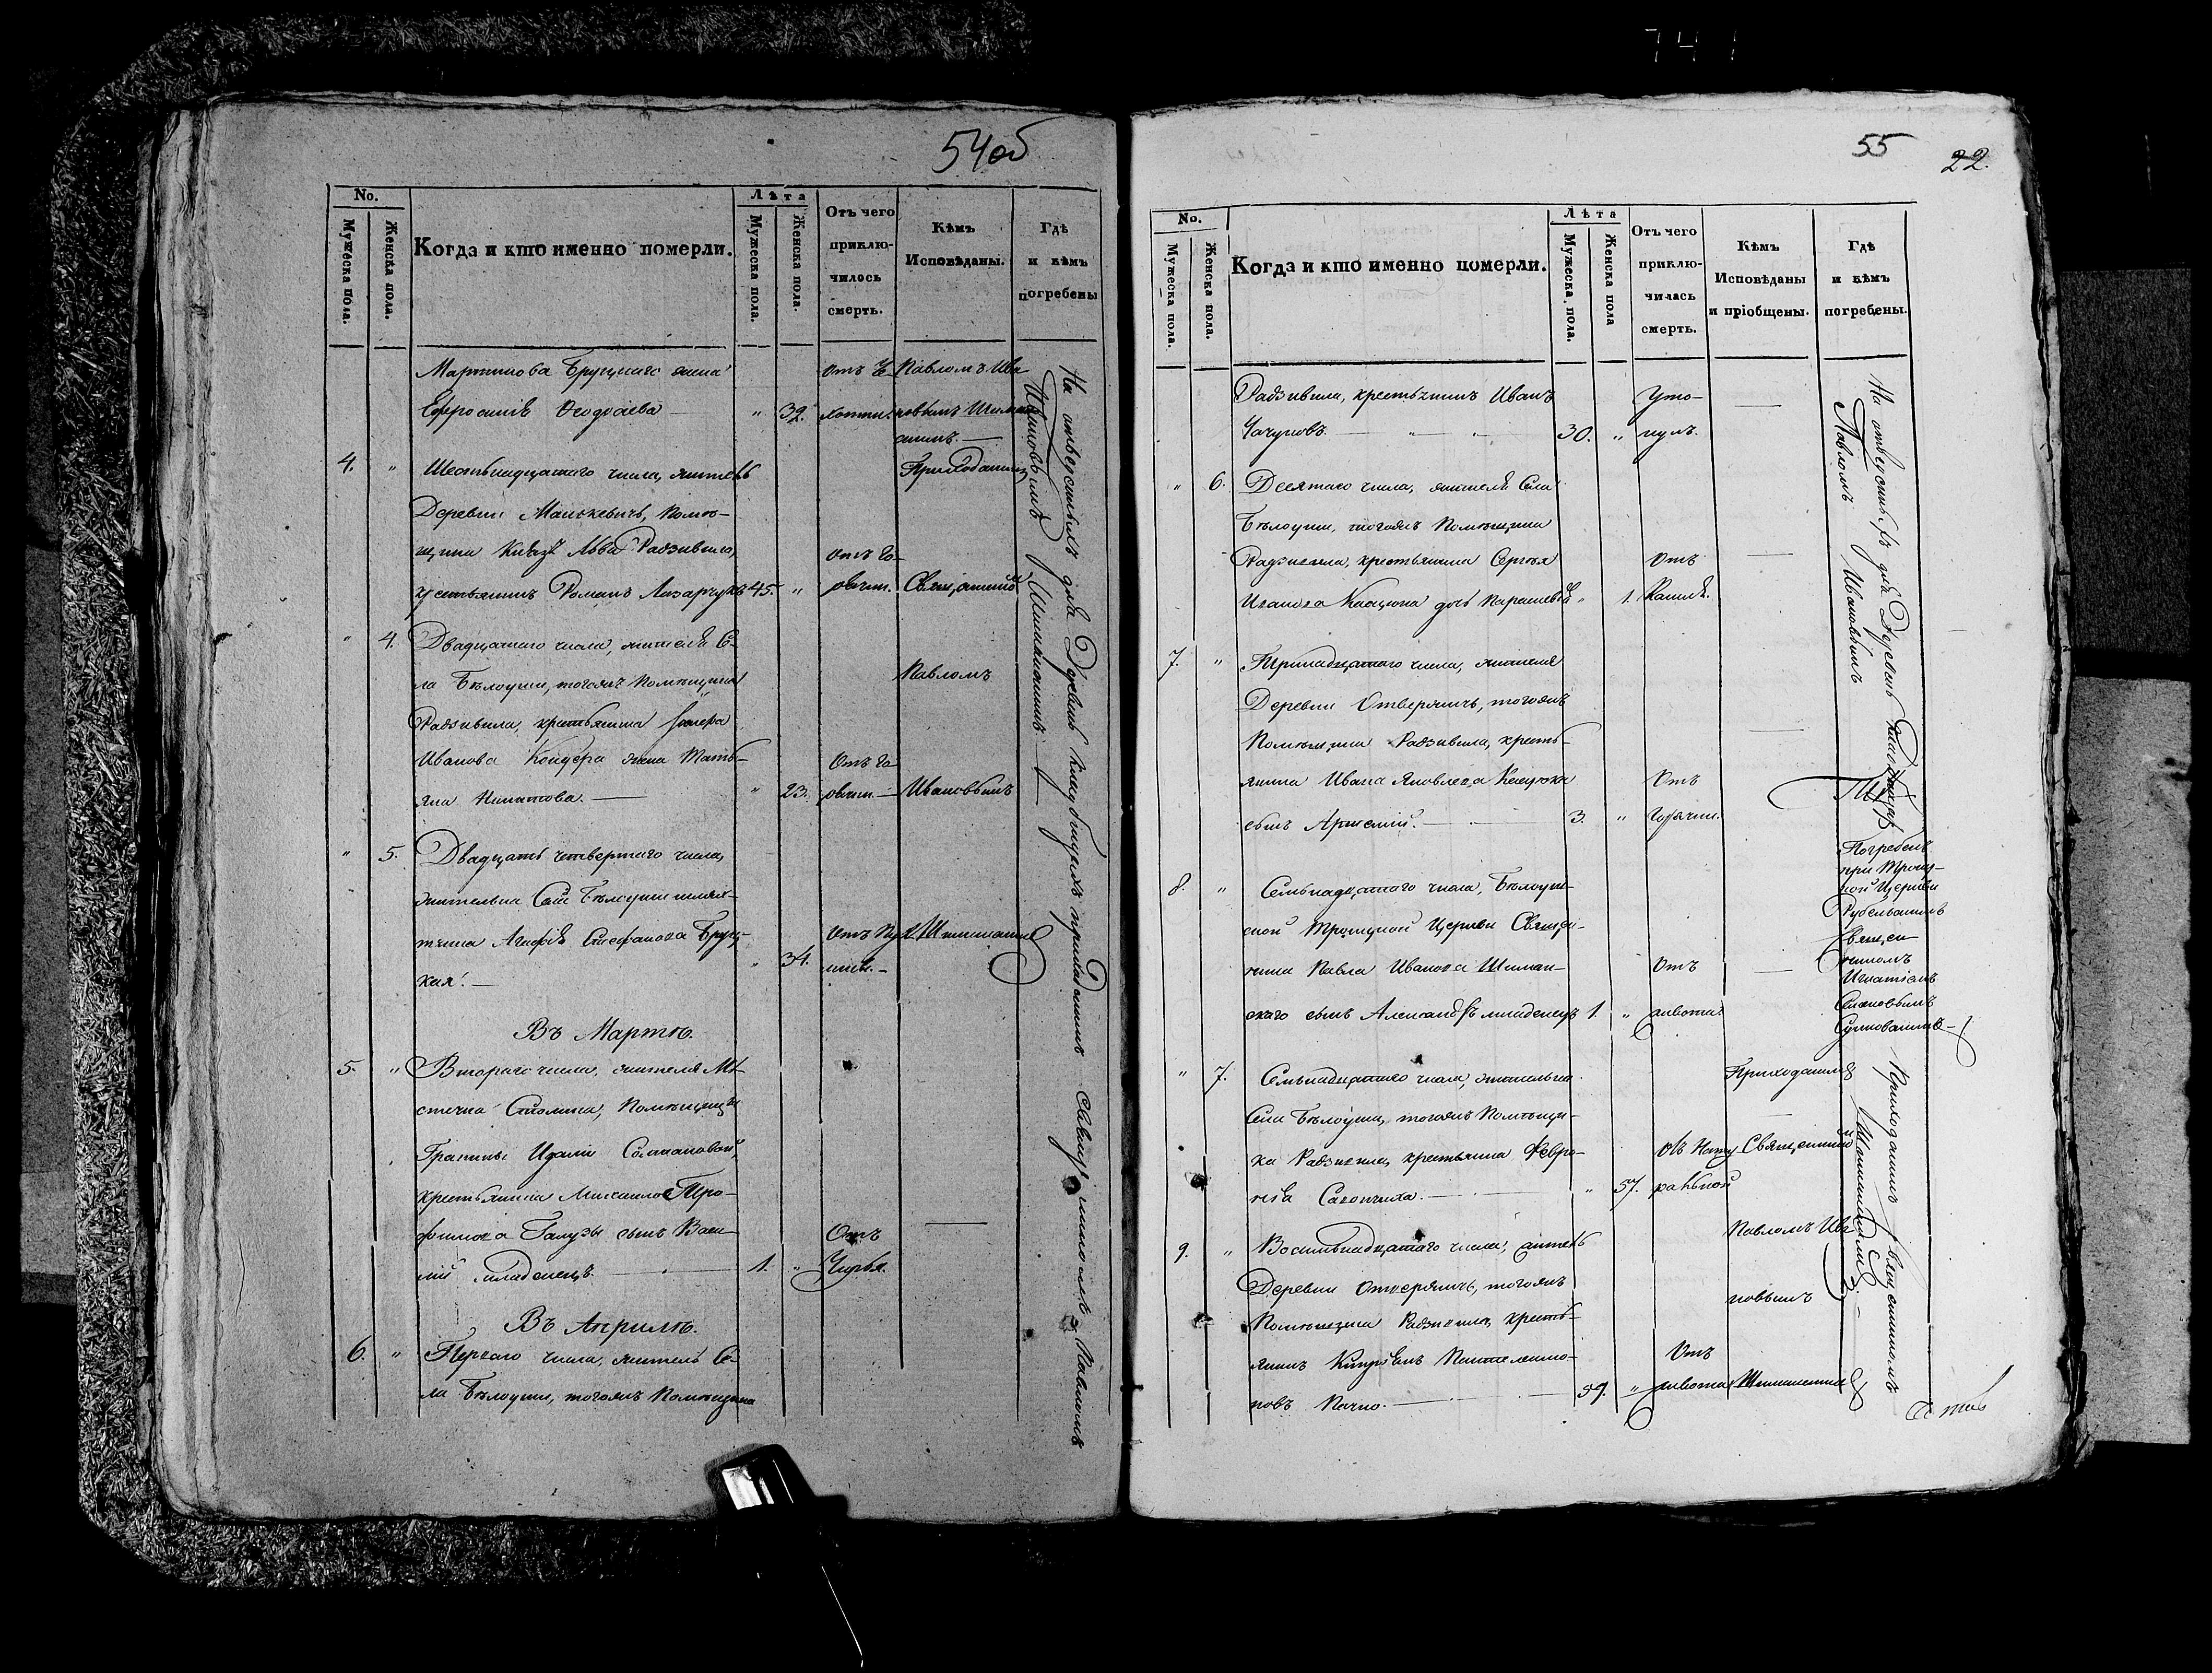 741
54об
No.
Мужеска пола.
Женска пола.
Когда и кто именно померли.
Лѣта
Мужеска пола.
Женска пола.
Отъ чего приклю-
чилось
смерть.
Кѣмъ
Исповѣданы.
Гдѣ
и кѣмъ
погребены
Мартинова Бруцкаго жена
Ефросинія Ѳеодосіева — „ 39.
Павломъ Ива
новымъ Шиман
скимъ. —
4. „ Шестьнадцатаго числа, житель
Деревни Манькевичъ, Помѣ-
щика Князя Льва Радзивила,
крестьянинъ Романъ Лазарчукъ 45. „
отъ го-
рячки.
Приходскимъ
Священникомъ
„ 4. Двадцатаго числа, жителя Се-
ла Бѣлоуши, тогожъ Помѣщика
Радзивила, крестьянина
Иванова жена Тать-
яна — „ 23.
Отъ го
рячки. —
Павломъ
Ивановымъ
„ 5. Двадцать четвертаго числа,
жителька Села Бѣлоуши шлях-
тянка Агафія Стефанова Бруц-
кая. — „ 34.
Шиманским
Въ Мартѣ.
5. „ Втораго числа, жителя Мѣ-
стечка Столина, Помѣщицы
Графини Идаліи
крестьянина Михаила Тро-
фимова Галузы сынъ Васи-
лій младенецъ. — 1. „
Отъ
Чирья.
—
Въ Апрѣлѣ.
6. „ Перваго числа, житель Се-
ла Бѣлоуши, тогожъ Помѣщика
На отведенномъ для Деревни кладбищѣ приходскимъ Священникомъ Павломъ
Ивановымъ Шиманскимъ
55
22.
No.
Мужеска пола.
Женска пола.
Когда и кто именно померли.
Лѣта
Мужеска пола.
Женска пола
Отъ чего
приклю-
чилась
смерть.
Кѣмъ
Исповѣданы
и пріобщены.
Гдѣ
и кѣмъ
погребены.
Радзивила, крестьянинъ Иванъ
Чачуновъ. — 30. „
Уто-
нулъ.
—
„ 6. Десятаго числа, жителя Села
Бѣлоуши, тогожъ Помѣщика
Радзивила, крестьянина Сергѣя
Иванова дочь Параскевія „ 1.
Отъ
Кашля.
—
7. „ Тринадцатаго числа, жителя
Деревни Отвержичъ, тогожъ
Помѣщика Радзивила, кресть-
янина Ивана Яковлева
сынъ Артемій. — 3. „
Отъ
Горячки.
—
8. „ Семьнадцатаго числа, Бѣлоуш-
ской Троицкой Церкви Священ-
ника Павла Иванова Шиман-
скаго сынъ Александръ младенецъ 1. „
Отъ
живота.
—
Погребенъ
при Троиц-
кой Церкви
Рубельскимъ
Священ-
никомъ
Игнатіемъ
„ 7. Семьнадцатаго числа, жителька
Села Бѣлоуши, тогожъ Помѣщи-
ка Радзивила, крестьянка Февро-
нія — „ 57.
Приходскимъ
Священникомъ
9. „ Восемьнадцатаго числа, житель
Деревни Отвержичъ, тогожъ
Помѣщика Радзивила, кресть-
янинъ Кипріанъ Пантелеимо-
новъ — 59. „
Отъ
живота
Павломъ Ива
новымъ
Шиманским
На отведенномъ для Деревни кладбищѣ
Павломъ Ивановымъ
Приходскимъ Священникомъ
Шиманскимъ